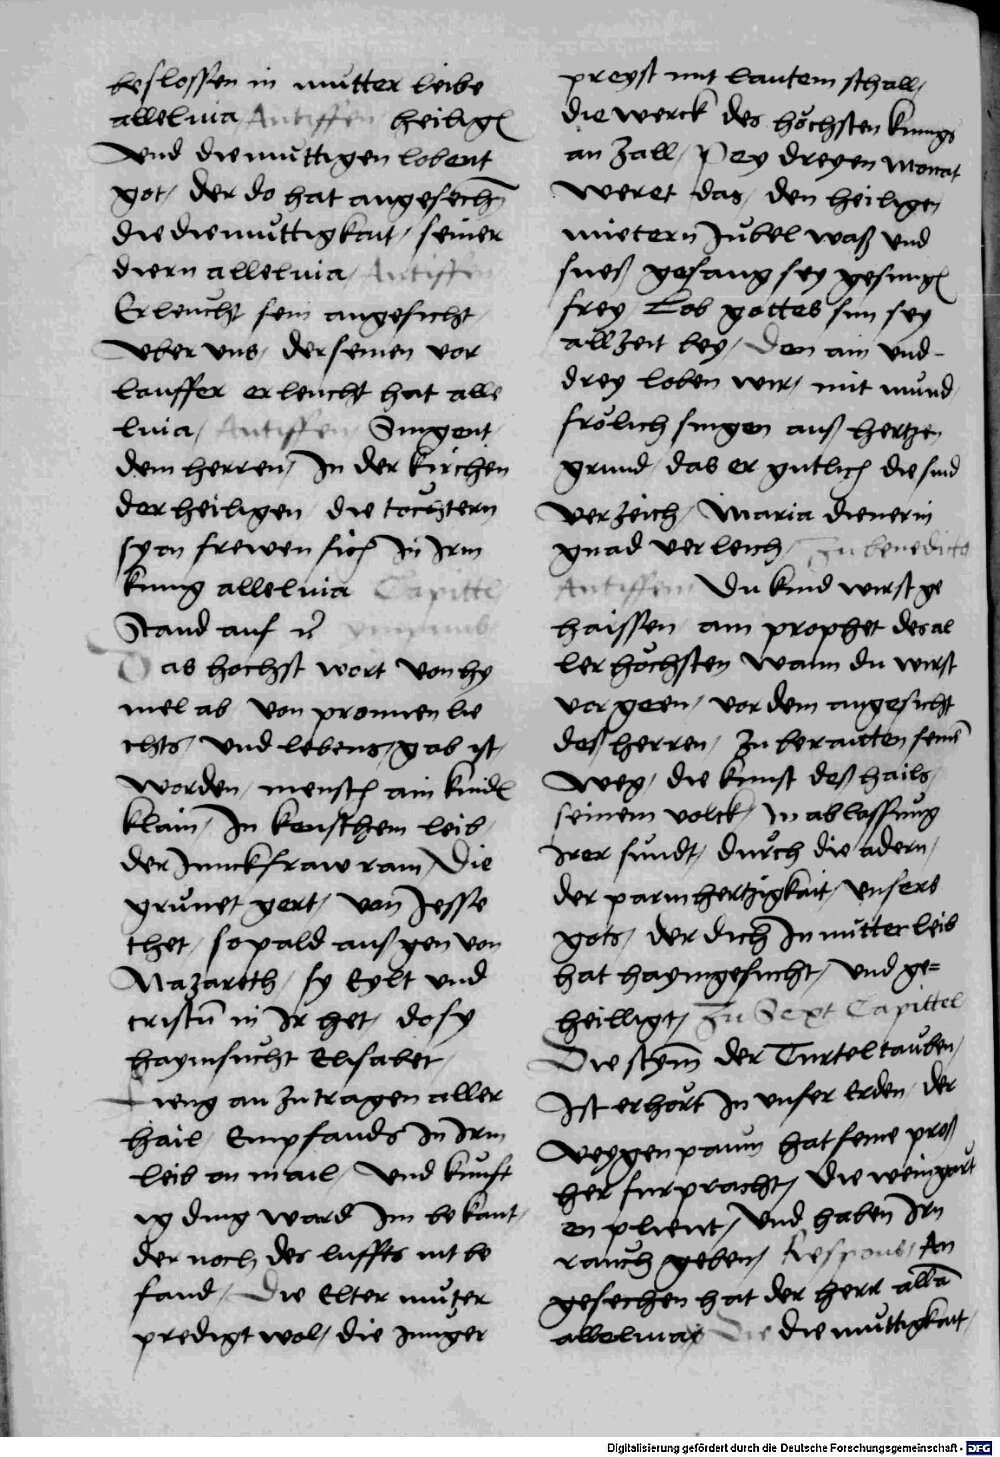 beslossen in mutter leibe
alleluia Antiffen heiligē
Vnd diemuttigen lobent
got, der do hat angesechē
die diemuttigkait, seiner
diern allelůia, Antiffen
Erleucht sein angesicht,
Vber vns, der seinen vor
lauffer erleucht hat alle
luia, Antiffen, Singent
dem herren, In der kirchen
der heiligen, die tochtern
syon frewen sich In Irm
kunig allelůia Capittl
Stand auf
Das hochst wort von hy
mel ab, von pronnen lie
chts, vnd lebens, gab ist,
worden, mensch ain kindl
klain, In keuschem leib,
der Junckfraw rain, Die
grůnet gert, von Jesse
thet, so pald auß gen von
Nazareth, sy Eylt vnd
cristū in Ir het, do sy
haymsucht Elisabet,
Fieng an zu tragen aller
hail, Empfands In Irm
leib on mail, Vnd kunft
ig ding ward Im bekant,
der noch des luffts nit be
fand, Die Elter můter
predigt wol, die junger
preyst mit lautem schall,
die werck des höchsten kunigs
an zall, Pey dreyen monat
weret das, den heiligen
můetern Jubel waß vnd
sues gesang sey gesungē
frey, Lob gottes sun sey
allzeit bey, Den ain vnd
drey loben wir, mit mund
frölich singen auß hertzen
grund, das er gutlich die sund
verzeich, Maria dienerin
gnad verleich, Zu benedictus
Antiffen Du kind wirst ge
haissen ain prophet des al
ler höchsten wann du wirst
vor geen, vor dem angesicht
deß herren, zu beraitten seinē
weg, die kunst deß hails,
seinem volck, In ablassung
Irer sundt, durch die adern,
der parmhertzigkait, vnsers
gots, der dich In mutter leib
hat haymgesucht, vnd ge=
heilligt, Zu Sext Capittel
Die stym̄ der Turteltauben,
Ist erhört In vnser Erden, der
Veygenpaum hat seine proß
her fur pracht, Die weingart
en plient, Vnd haben Irn
rauch geben, Respons, An
gesechen hat der herr allā
allelůiae Die diemuttigkait,